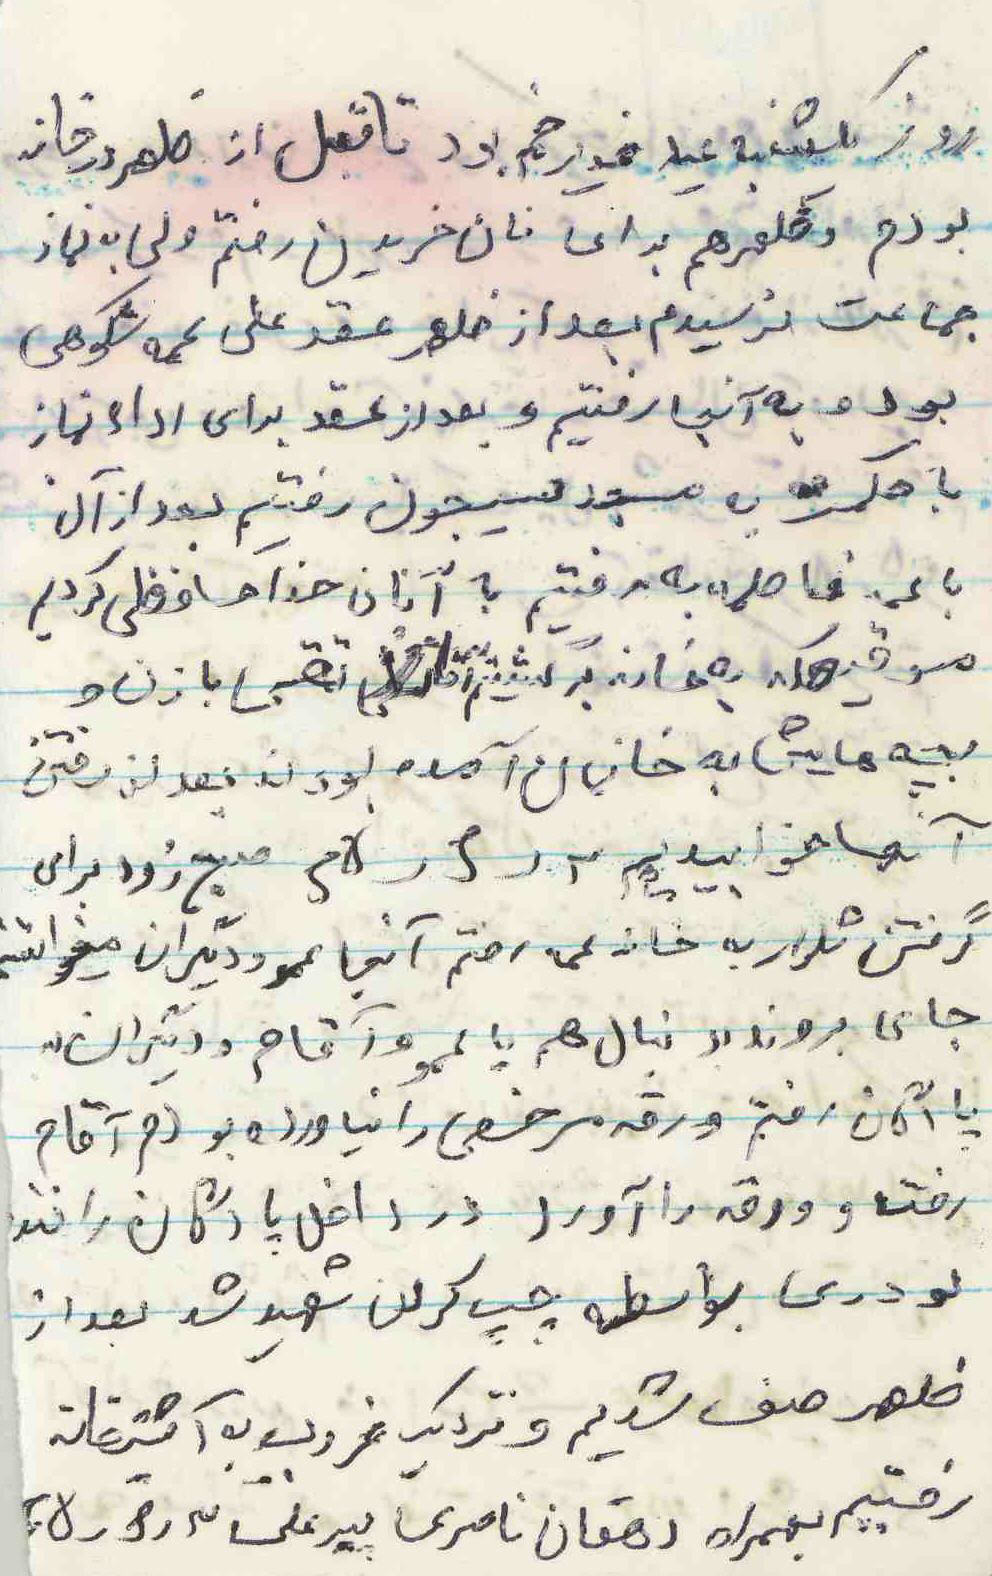 روز یکشنبه عید غدیر خم بود تا قبل از ظهر در خانه
بودم و ظهر هم برای نان خریدن رفتم ولی به نماز
جماعت نرسیدم بعد از ظهر عقد علی عمه شکوهی
بود و به آنجا رفتیم و بعد از عقد برای اداء نماز
با حکمت به مسجد رفتیم بعد از آن
با عمه فاصله به رفتیم با آنان خداحافظی کردیم
موقعیکه به خانه برگشتیم آقای نقی با زن و
بچه هایش به خانیمان آمده بودند بعد از رفتن
آنها خوابیدیم صبح زود برای
گرفتن شلوار به خانه عمه رفتم آنجا عمو و دیگران میخواستند
جای بروند دنبال هم با عمو و آقام و دیگران به
پادگان رفتم ورقه مرخصی را نیاورده بودم آقام
رفت و ورقه را آورد در داخل پادگان راننده
لودری بواسطه چپ کردن شهید شد بعد از
ظهر صف شدیم و نزدیک غروب به آشپزخانه
رفتیم بهمراه دهقان ناصری پیرعلی